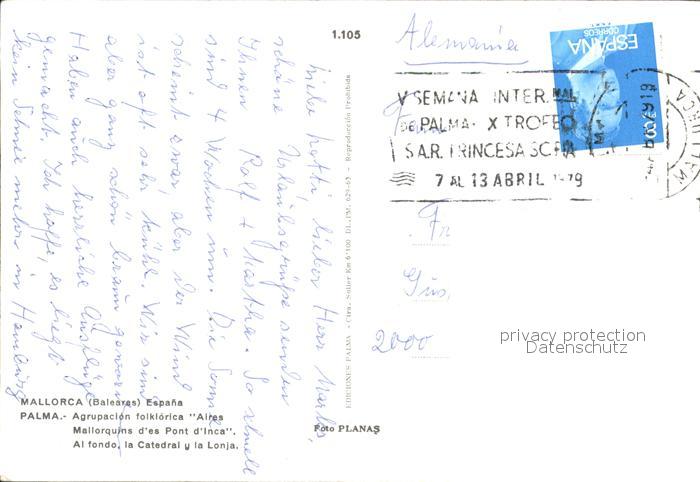 1.105
Alemania
ESPAÑA
CORREOS
V SEMANA INTER.NAL
DE PALMA - X TROFEO
S.A.R. PRINCESA SOFIA
7 AL 13 ABRIL 1979
Liebe Lotti, lieber Herr
schöne Urlaubsgrüße senden
Ihnen Rolf + Martha. So schnell
sind 4 Wochen um. Die Sonne
scheint zwar aber der Wind
ist oft sehr kühl. Wir sind
aber ganz schön braun geworden
Haben auch herrliche Ausflüge
gemacht. Ich hoffe, es liegt
kein Schnee mehr in Hamburg
EDICIONES PALMA - Ctra. Soller Km 6'100 DL.-PM. 629-65 - Reproducción Prohibida
2000
privacy protection
Datenschutz
MALLORCA (Baleares) España
PALMA.- Agrupación folklórica "Aires
Mallorquins d'es Pont d'Inca".
Al fondo, la Catedral y la Lonja.
Foto PLANAS